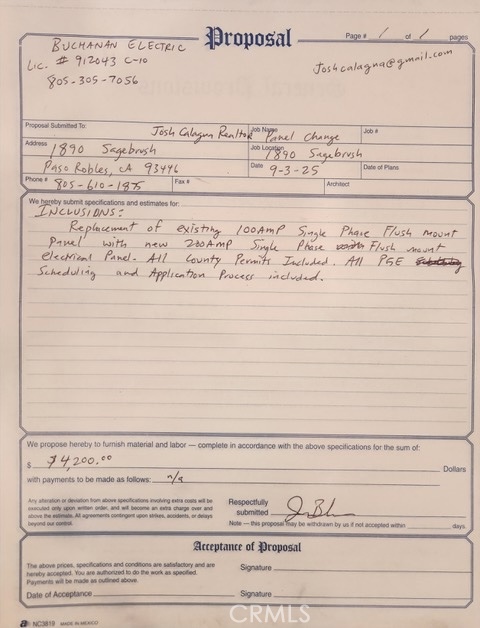 BUCHANAN ELECTRIC
Proposal
Page # 1 of 1 pages
Lic. # 912043 C-10
Joshcalagna@gmail.com
805-305-7056
Proposal Submitted To: Josh Calagna Realtor
Job Name Panel Change
Job #
Address 1890 Sagebrush
Job Location 1890 Sagebrush
Paso Robles, CA 93446
Date 9-3-25
Date of Plans
Phone # 805-610-1875
Fax #
Architect
We hereby submit specifications and estimates for:
INCLUSIONS:
Replacement of existing 100AMP Single Phase Flush mount
Panel with new 200AMP Single Phase Flush mount
electrical Panel. All County Permits Included. All PGE
Scheduling and Application Process included.
We propose hereby to furnish material and labor — complete in accordance with the above specifications for the sum of:
$ $4,200.00 Dollars
with payments to be made as follows: n/a
Any alteration or deviation from above specifications involving extra costs will be
executed only upon written order, and will become an extra charge over and
above the estimate. All agreements contingent upon strikes, accidents, or delays
beyond our control.
Respectfully
submitted
Note — this proposal may be withdrawn by us if not accepted within days.
Acceptance of Proposal
The above prices, specifications and conditions are satisfactory and are
hereby accepted. You are authorized to do the work as specified.
Payments will be made as outlined above.
Signature
Date of Acceptance
Signature
CRMLS
a NC3819 MADE IN MEXICO